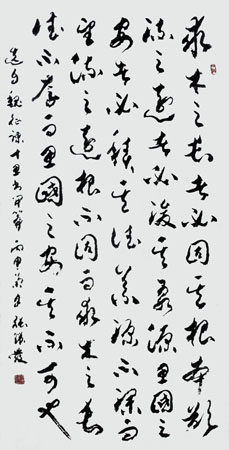 求木之長者必固其根本欲
流之遠者必浚其泉源思國之
安者必積其德義源不深而
望流之遠根不固而求木之長
德不厚而思國之安其不可也
魏征諫十思 丙申